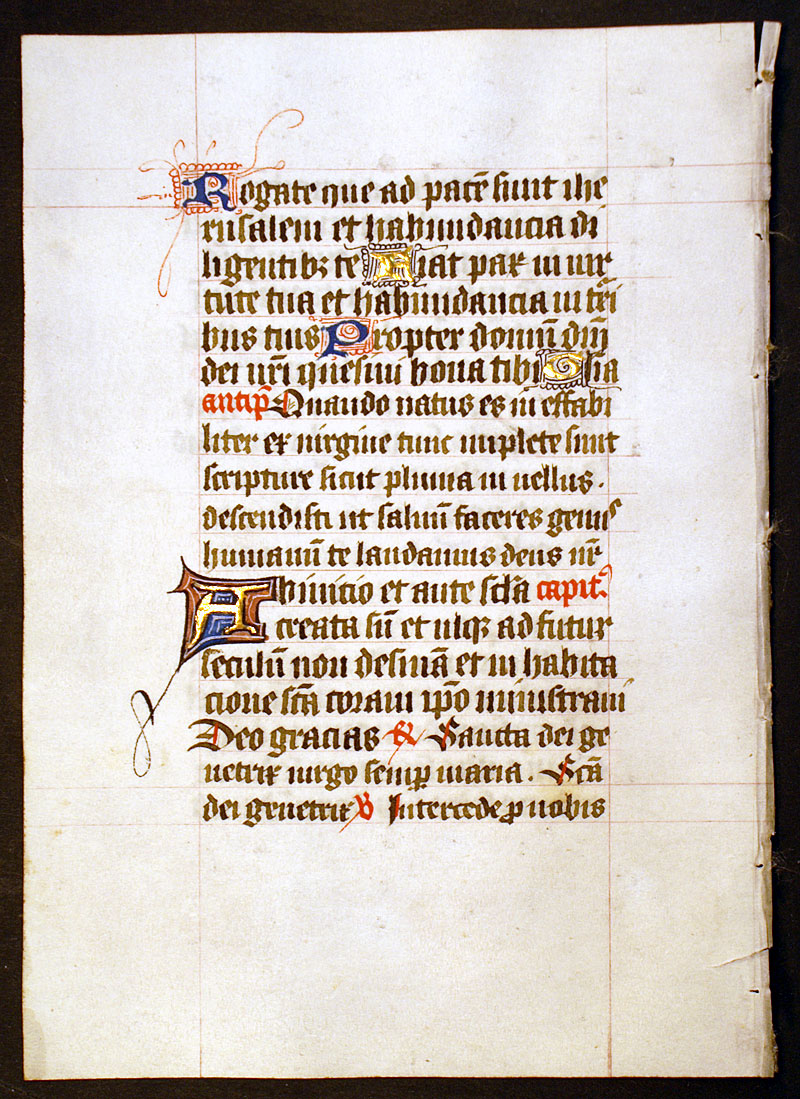 Rogate que ad pacē sunt ihe
rusalem et habundancia di
ligentibꝫ te Fiat pax in uir
tute tua et habundancia in t'ri
bus tuis Propter domū dn̄i
dei nr̄i quesiui bona tibi Glia
antiph̄ Quando natus es in effabi
liter ex uirgine tunc implete sunt
scripture sicut pluuia in uellus .
descendisti ut saluū faceres genus
humanū te laudamus deus nr̄
Ab inicio et ante scl̄a capit'
creata sū et usqꝫ ad futur
seculū non desinā et in habita
cione scā coram ip̄o ministraui
Deo gracias ℟ Sancta dei ge
netrix uirgo semꝑ maria . Scā
dei genetrix ℣ Intercede ꝓ nobis